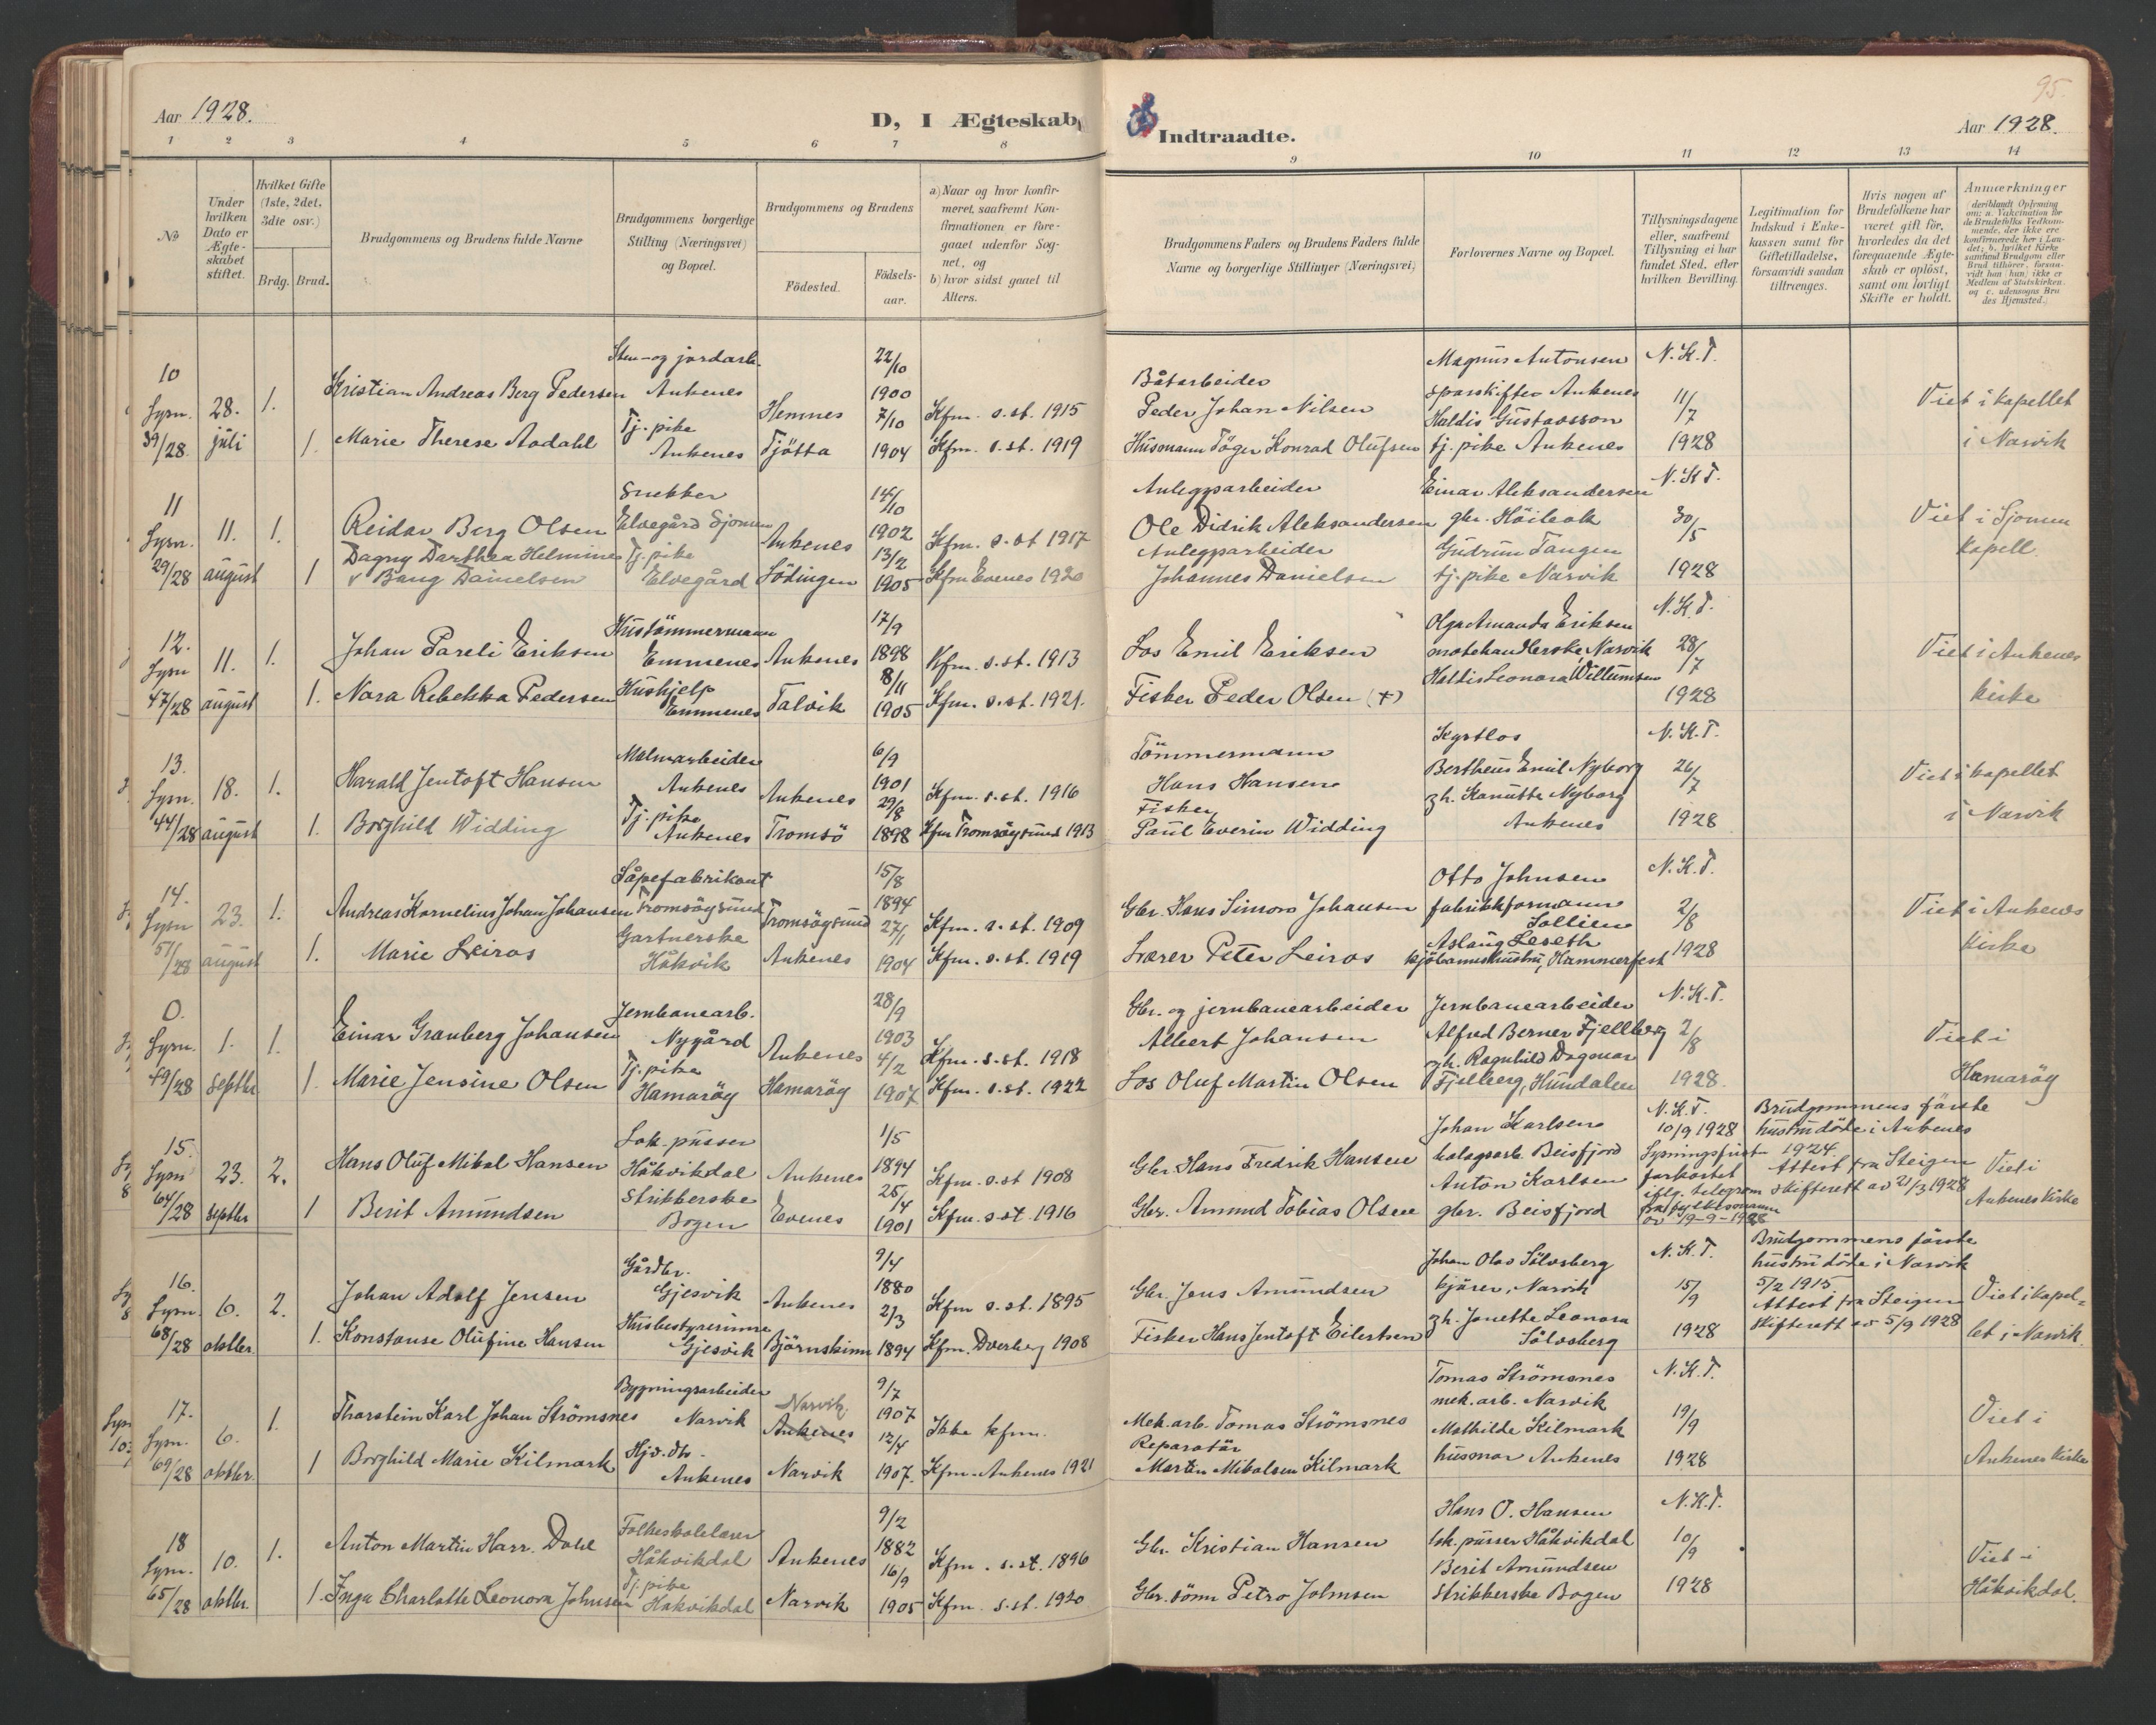 Aar 1928.
D, I Ægteskab,
1 2 3 4 5 6 7 8
No
Under hvilken Dato er Ægteskabet stiftet.
Hvilket Gifte (1ste, 2det, 3die osv.)
Brdg. Brud.
Brudgommens og Brudens fulde Navne
Brudgommens borgerlige Stilling (Næringsvei) og Bopæl.
Brudgommens og Brudens
Födested.
Födselsaar.
a) Naar og hvor konfirmeret, saafremt Konfirmationen er foregaaet udenfor Sognet, og
b) hvor sidst gaaet til Alters.
10 Lysn. 39/28
28. juli
1.
Kristian Andreas Berg Pedersen
Sten- og jordarb. Ankenes
Hemnes
22/10 1900
Kfm. s. st. 1915
1.
Marie Therese Aadahl
Tj. pike Ankenes
Tjötta
7/10 1904
Kfm. s. st. 1919
11 Lysn. 29/28
11. august
1.
Reidar Berg Olsen
Snekker Elvegård Sjomen
Ankenes
14/10 1902
Kfm. s. st 1917
1
Dagny Darthea Helmine
v Bang Danielsen
Tj. pike Elvegård
Lödingen
13/2 1905
Kfm Evenes 1920
12. Lysn 47/28
11. august
1.
Johan Pareli Eriksen
Hustömmermann Emmenes
Ankenes
17/9 1898
Kfm. s. st. 1913
1.
Nora Rebekka Pedersen
Hushjelp Emmenes
Talvik
8/11 1905
Kfm. s. st. 1921.
13. Lysn. 44/28
18. august
1.
Harald Jentoft Hansen
Malmarbeider Ankenes
Ankenes
6/9 1901
Kfm. s. st. 1916
1.
Borghild Widding
Tj. pike Ankenes
Tromsö
29/8 1898
Kfm Tromsöysund 1913
14. Lysn 51/28
23. august
1.
Andreas Kornelius Johan Johansen
Såpefabrikant Tromsöysund
Tromsöysund
15/8 1894
Kfm. s. st. 1909
1.
Marie Leiros
Gartnerske Håkvik
Ankenes
27/1 1904
Kfm. s. st. 1919
0. Lysn. 49/28
1. septbr
1.
Einar Granberg Johansen
Jernbanearb. Nygård
Ankenes
28/9 1903
Kfm. s. st. 1918
1.
Marie Jensine Olsen
Tj. pike Hamaröy
Hamaröy
4/2 1907
Kfm. s. st. 1922
15. Lysn 64/28
23. septbr
2.
Hans Oluf Mikal Hansen
Lok. pusser Håkvikdal
Ankenes
1/5 1894
Kfm. s. st 1908
1
Berit Amundsen
Strikkerske Bogen
Evenes
25/4 1901
Kfm. s. st. 1916
16. Lysn. 68/28
6. oktbr.
2.
Johan Adolf Jensen
Gårdbr. Gjesvik
Ankenes
9/4 1880
Kfm s. st. 1895
1.
Konstanse Olufine Hansen
Husbestyrerinne Gjesvik
Björnskinn
2/3 1894
Kfm. Dverberg 1908
17. Lysn. 69/28
6. oktbr.
1.
Thorstein Karl Johan Strömsnes
Bygningsarbeider Narvik
Narvik. Ankenes
9/7 1907
Ikke kfm.
1
Borghild Marie Kilmark
Hjv. dtr. Ankenes
Narvik
12/4 1907.
Kfm. Ankenes 1921
18 Lysn. 65/28
10. oktbr.
1.
Anton Martin Harr. Dahl
Folkeskolelærer Håkvikdal
Ankenes
9/2 1882
Kfm. s. st. 1896
1.
Inga Charlotte Leonora Johnsen
Tj. pike Håkvikdal
Narvik
16/9 1905
Kfm. s. st. 1920
95.
Indtraadte.
Aar 1928.
9 10 11 12 13 14
Brudgommens Faders og Brudens Faders fulde Navne og borgerlige Stillinger (Næringsvei)
Forlovernes Navne og Bopæl.
Tillysningsdagene eller, saafremt Tillysning ei har fundet Sted, efter hvilken Bevilling.
Legitimation for Indskud i Enkekassen samt for Giftetilladelse, forsaavidt saadan tiltrænges.
Hvis nogen af Brudefolkene har været gift för, hvorledes da det foregaaende Ægteskab er oplöst, samt om lovligt Skifte er holdt.
Anmærkninger (deriblandt Oplysning om: a. Vakcination for de Brudefolks Vedkommende, der ikke ere konfirmerede her i Landet; b. hvilket Kirkesamfund Brudgom eller Brud tilhörer, forsaavidt han (hun) ikke er Medlem af Statskirken. og c. udensogns Brudes Hjemsted.)
Båtarbeider
Peder Johan Nilsen
Husmann Töger Konrad Olufsen
Magnus Antonsen
sporskifter Ankenes
Haldis Gustavsson
tj. pike Ankenes
N. K. T. 11/7 1928
Viet i kapellet i Narvik
Anleggsarbeider
Ole Didrik Aleksandersen
Anleggsarbeider
Johannes Danielsen
Einar Aleksandersen
gbr. Höibak
Gudrun Tangen
tj. pike Narvik
N. K. T. 30/5 1928
Viet i Sjomen kapell
Los Emil Eriksen
Fisker Peder Olsen (+)
Olga Amanda Eriksen
motehandlerske, Narvik
Haldis Leonora Willumsen
N. K. T. 28/7 1928
Viet i Ankenes kirke
Tömmermann
Hans Hansen
Fisker
Paul Everin Widding
Kystlos
Bertheus Emil Nyborg
og h. Kanutte Nyborg
Ankenes
N. K. T. 26/7 1928
Viet i kapellet i Narvik
Gbr. Hans Simon Johansen
Lærer Peter Leiros
Otto Johnsen
fabrikkformann
Sollien
Aslaug Leseth
kjöbmannshustru, Hammerfest
N. K. T. 2/8 1928
Viet i Ankenes kirke
Gbr. og jernbanearbeider
Albert Johansen
Los Oluf Martin Olsen
Jernbanearbeider
Alfred Berner Fjellberg
og h. Ragnhild Dagmar
Fjelberg, Hundalen
N. K. T. 2/8 1928.
Viet i Hamaröy
Gbr. Hans Fredrik Hansen
Gbr. Amund Tobias Olsen
Johan Karlsen
kologarb. Beisfjord
Anton Karlsen
gbr. Beisfjord
N. K. T.
10/9 1928
Lysningsfrist
forkortet
iflg. telegram
fra fylkesmann
av 19-9-1928
Brudgommens förste
hustru döde i Ankenes
1924.
Attest fra Steigen
skifterett av 21/3 1928
Viet i Ankenes kirke
Gbr. Jens Amundsen
Fisker Hans Jentoft Eilertsen
Johan Olav Sölvsberg
kjörer, Narvik
og h. Janette Leonora
Sölvsberg
N. K. T. 15/9 1928
Brudgommens förste
hustru döde i Narvik
5/2 1915.
Attest fra Steigen
skifterett av 5/9 1928
Viet i kapel-
let i Narvik.
Mek. arb. Tomas Strömsnes
Reparatör
Martin Mikalsen Kilmark
Tomas Strömsnes
mek. arb. Narvik
Mathilde Kilmark
husmor Ankenes
N. K. T. 19/9 1928
Viet i Ankenes kirke
Gbr. Kristian Hansen
Gbr. sönn Petro Johnsen
Hans O. Hansen
lok. pusser Håkvikdal
Berit Amundsen
strikkerske Bogen
N. K. T. 10/9 1928
Viet i Håkvikdal.